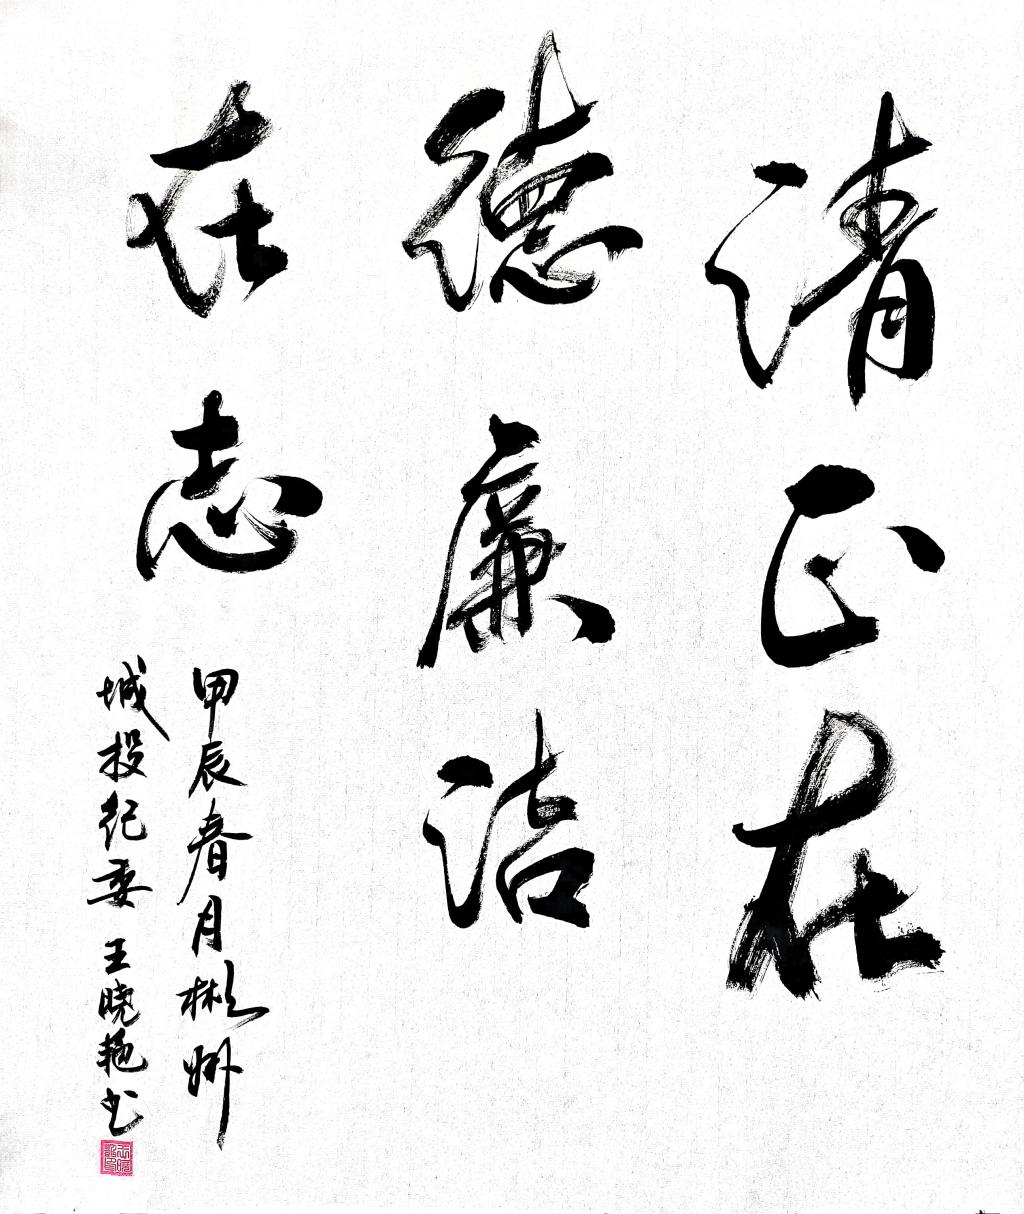 清正在
德廉洁
在志
甲辰春月彬州
城投纪委 王晓艳书